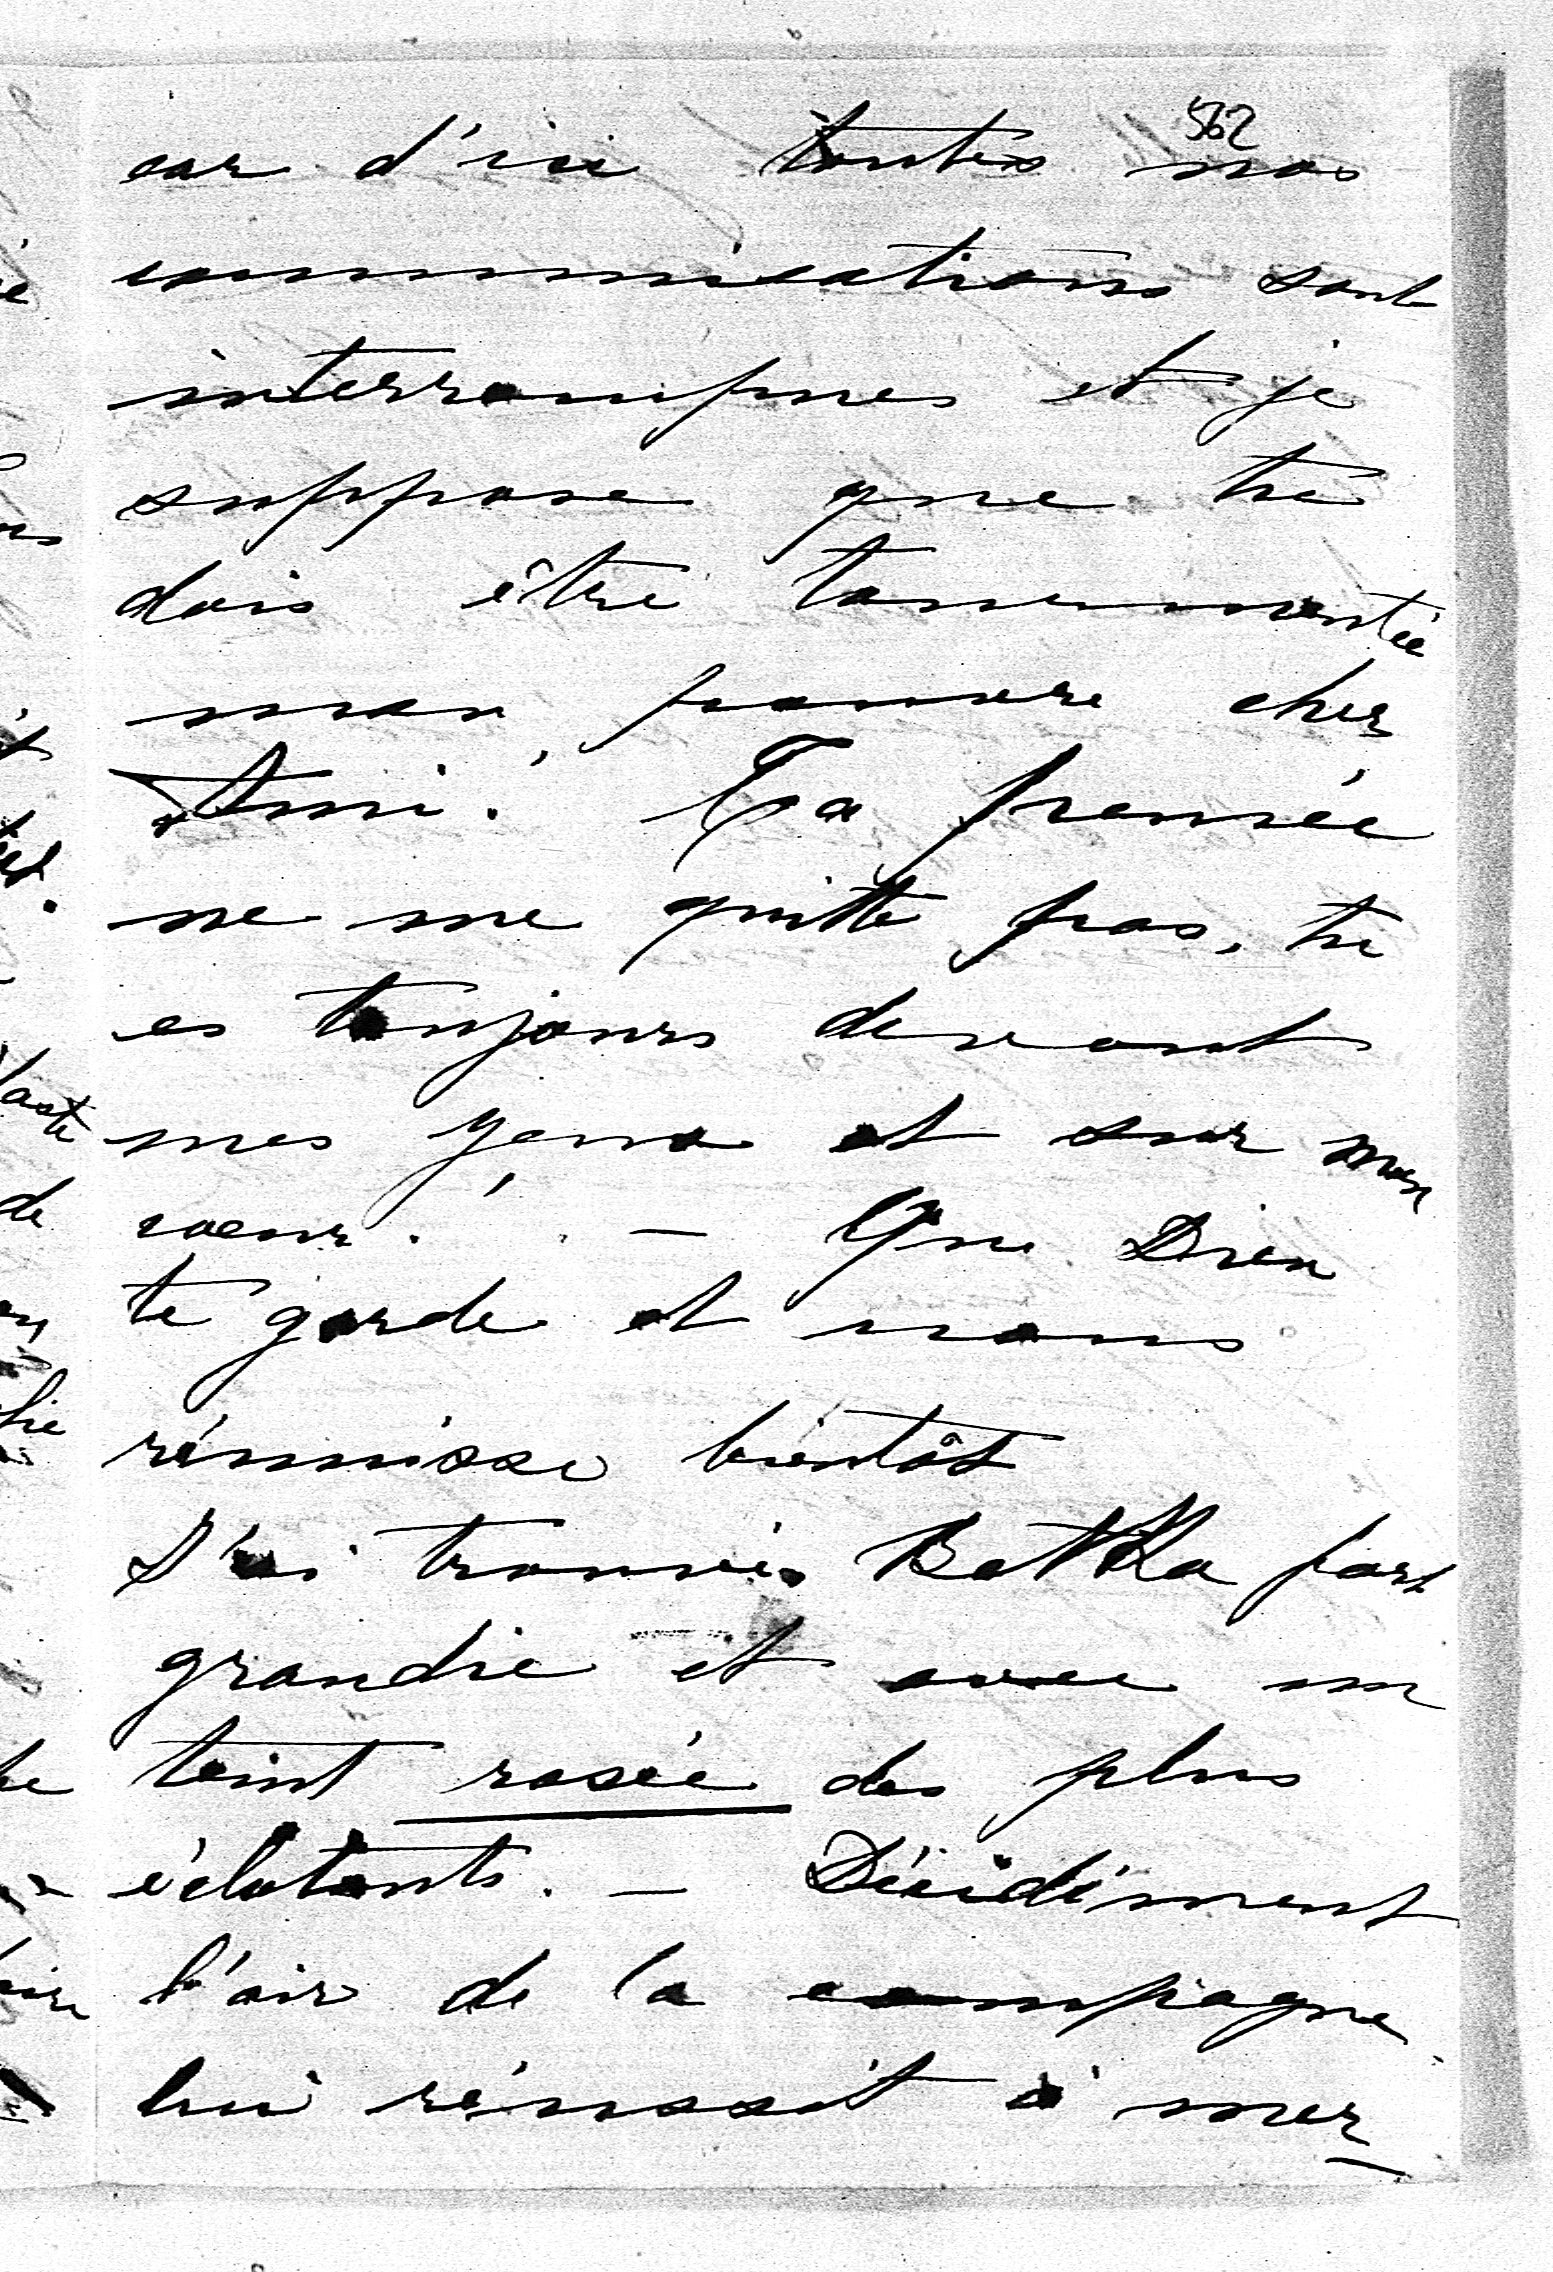 562
car d'ici toutes nos
communications sont
interrompues et je
suppose que tu
dois être tourmentée
mon pauvre cher
Ami. Ta pensée
ne me quitte pas, tu
es toujours devant
mes yeux et sur mon
coeur. — Que Dieu
te garde et nous
réunisse bientôt
J'ai trouvé Bettka fort
grandie et avec un
teint rosée des plus
éclatants. — Décidément
l'air de la campagne
lui réussit à mer